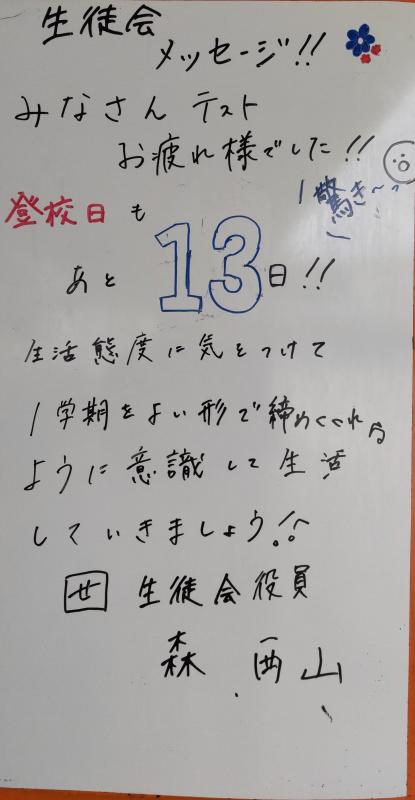 生徒会
メッセージ!!
みなさん テスト
お疲れ様でした!!
驚き〜っ
登校日も
あと 13日!!
生活態度に気をつけて
1学期をよい形で締めくくれる
ように意識して生活
していきましょう!!
世 生徒会役員
森 西山